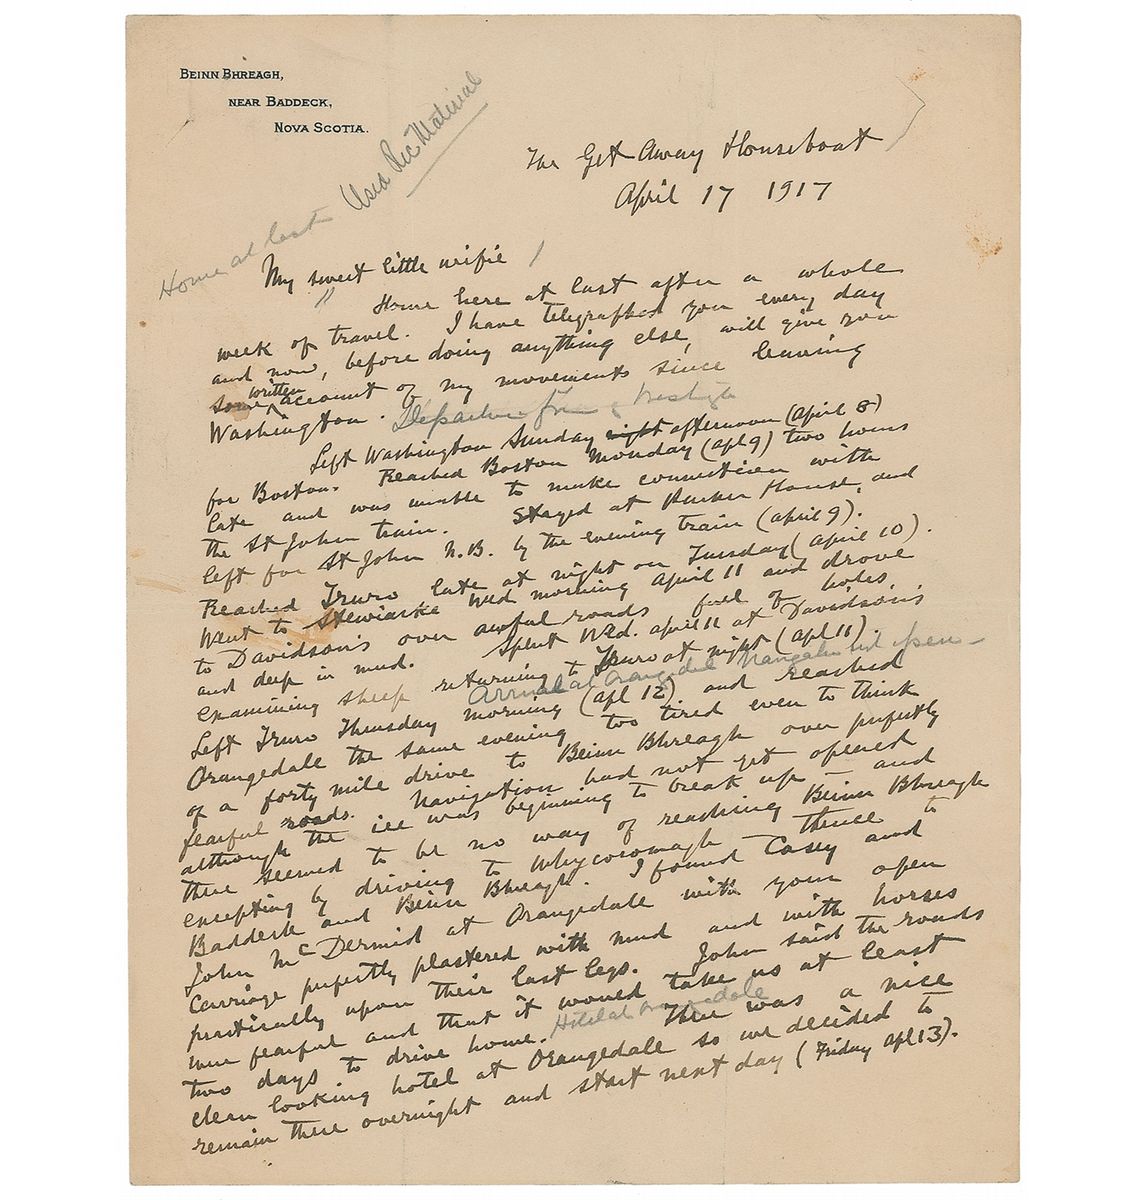 BEINN BHREAGH,
NEAR BADDECK,
NOVA SCOTIA.
Used Rec Material
The Get Away Houseboat
April 17 1917
Home at last
My sweet little wifie
Home here at last after a whole
week of travel. I have telegraphed you every day
and now, before doing anything else, will give you
some written account of my movements since leaving
Washington. Departure from Washington
Left Washington Sunday night afternoon (April 8)
for Boston. Reached Boston Monday (apl 9) two hours
late and was unable to make connection with
the St John train. Stayed at Parker House, and
left for St John N.B. by the evening train (april 9).
Reached Truro late at night on Tuesday (april 10).
Went to Stewiacke Wed morning April 11 and drove
to Davidson's over awful roads full of holes
and deep in mud. Spent Wed. april 11 at Davidson's
examining sheep returning to Truro at night (apl 11).
Arrival at Orangedale Navigation not open
Left Truro Thursday morning (apl 12) and reached
Orangedale the same evening too tired even to think
of a forty mile drive to Beinn Bhreagh over perfectly
fearful roads. Navigation had not yet opened
although the ice was beginning to break up — and
there seemed to be no way of reaching Beinn Bhreagh
excepting by driving to Whycocomagh thence to
Baddeck and Beinn Bhreagh. I found Casey and
John McDermid at Orangedale with your open
carriage perfectly plastered with mud and with horses
practically upon their last legs. John said the roads
were fearful and that it would take us at least
two days to drive home. Hotel at Orangedale There was a nice
clean looking hotel at Orangedale so we decided to
remain there overnight and start next day (Friday apl 13).